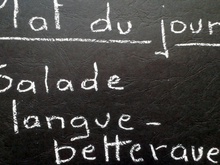 Plat du jour
Salade
langue-
betterave